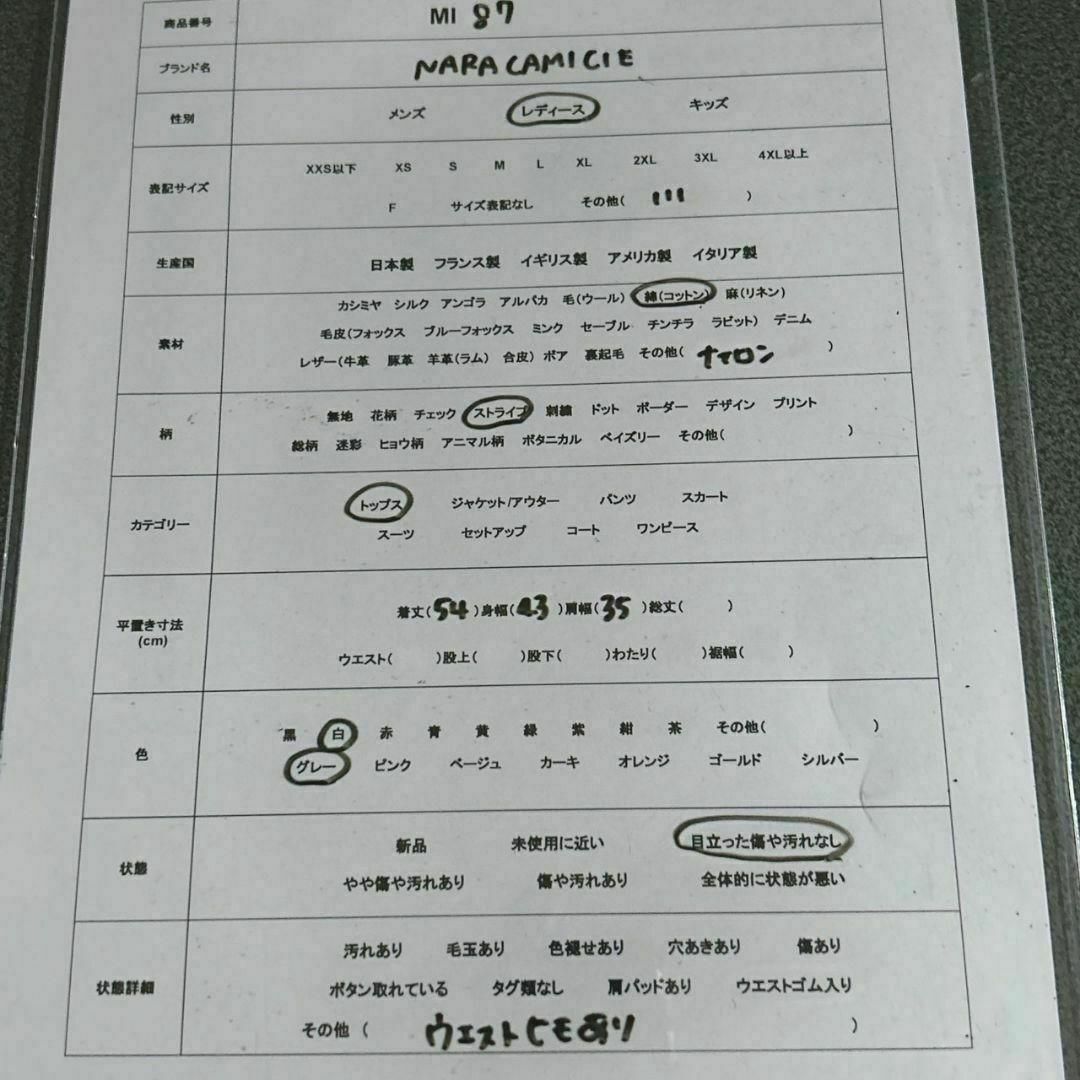 商品番号 MI 87
ブランド名 NARA CAMICIE
性別 メンズ レディース キッズ
表記サイズ XXS以下 XS S M L XL 2XL 3XL 4XL以上
F サイズ表記なし その他( III )
生産国 日本製 フランス製 イギリス製 アメリカ製 イタリア製
素材 カシミヤ シルク アンゴラ アルパカ 毛(ウール) 綿(コットン) 麻(リネン)
毛皮(フォックス ブルーフォックス ミンク セーブル チンチラ ラビット) デニム
レザー(牛革 豚革 羊革(ラム) 合皮) ボア 裏起毛 その他( ナイロン )
柄 無地 花柄 チェック ストライプ 刺繍 ドット ボーダー デザイン プリント
総柄 迷彩 ヒョウ柄 アニマル柄 ボタニカル ペイズリー その他( )
カテゴリー トップス ジャケット/アウター パンツ スカート
スーツ セットアップ コート ワンピース
平置き寸法 (cm) 着丈(54)身幅(43)肩幅(35)総丈( )
ウエスト( )股上( )股下( )わたり( )裾幅( )
色 黒 白 赤 青 黄 緑 紫 紺 茶 その他( )
グレー ピンク ベージュ カーキ オレンジ ゴールド シルバー
状態 新品 未使用に近い 目立った傷や汚れなし
やや傷や汚れあり 傷や汚れあり 全体的に状態が悪い
状態詳細 汚れあり 毛玉あり 色褪せあり 穴あきあり 傷あり
ボタン取れている タグ類なし 肩パッドあり ウエストゴム入り
その他 ( ウエストヒモあり )